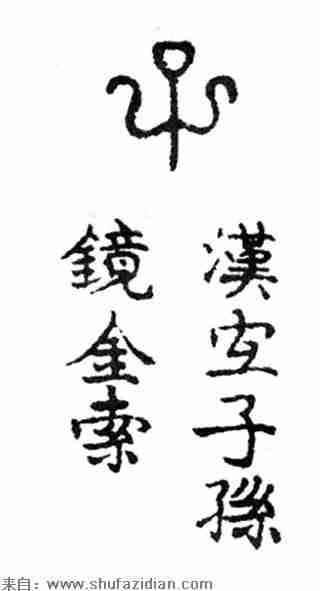 子
漢宜子孫
鏡金索
来自：www.shufazidian.com